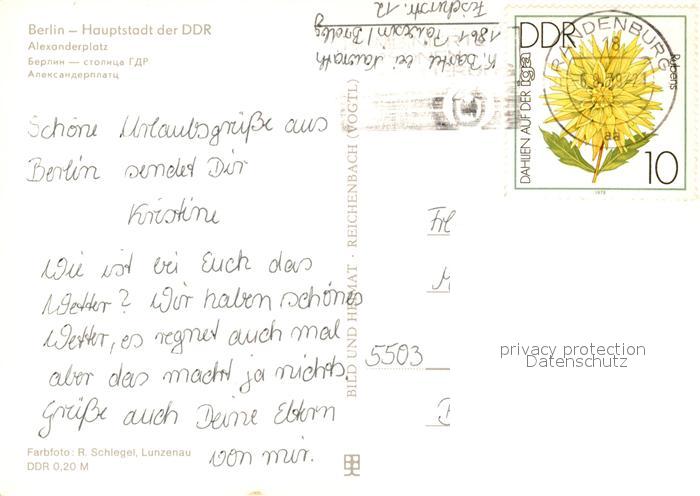 Berlin – Hauptstadt der DDR
Alexanderplatz
Берлин — столица ГДР
Александерплатц
Schöne Urlaubsgrüße aus
Berlin sendet Dir
Kristine
Wie ist bei Euch das
Wetter? Wir haben schönes
Wetter, es regnet auch mal
aber das macht ja nichts.
Grüße auch Deine Eltern
von mir.
Farbfoto: R. Schlegel, Lunzenau
DDR 0,20 M
BILD UND HEIMAT · REICHENBACH (VOGTL)
K. Bartel bei
1801
12
DDR
DAHLIEN AUF DER iga
Rubens
10
1979
BRANDENBURG
18
aa
5503
privacy protection
Datenschutz